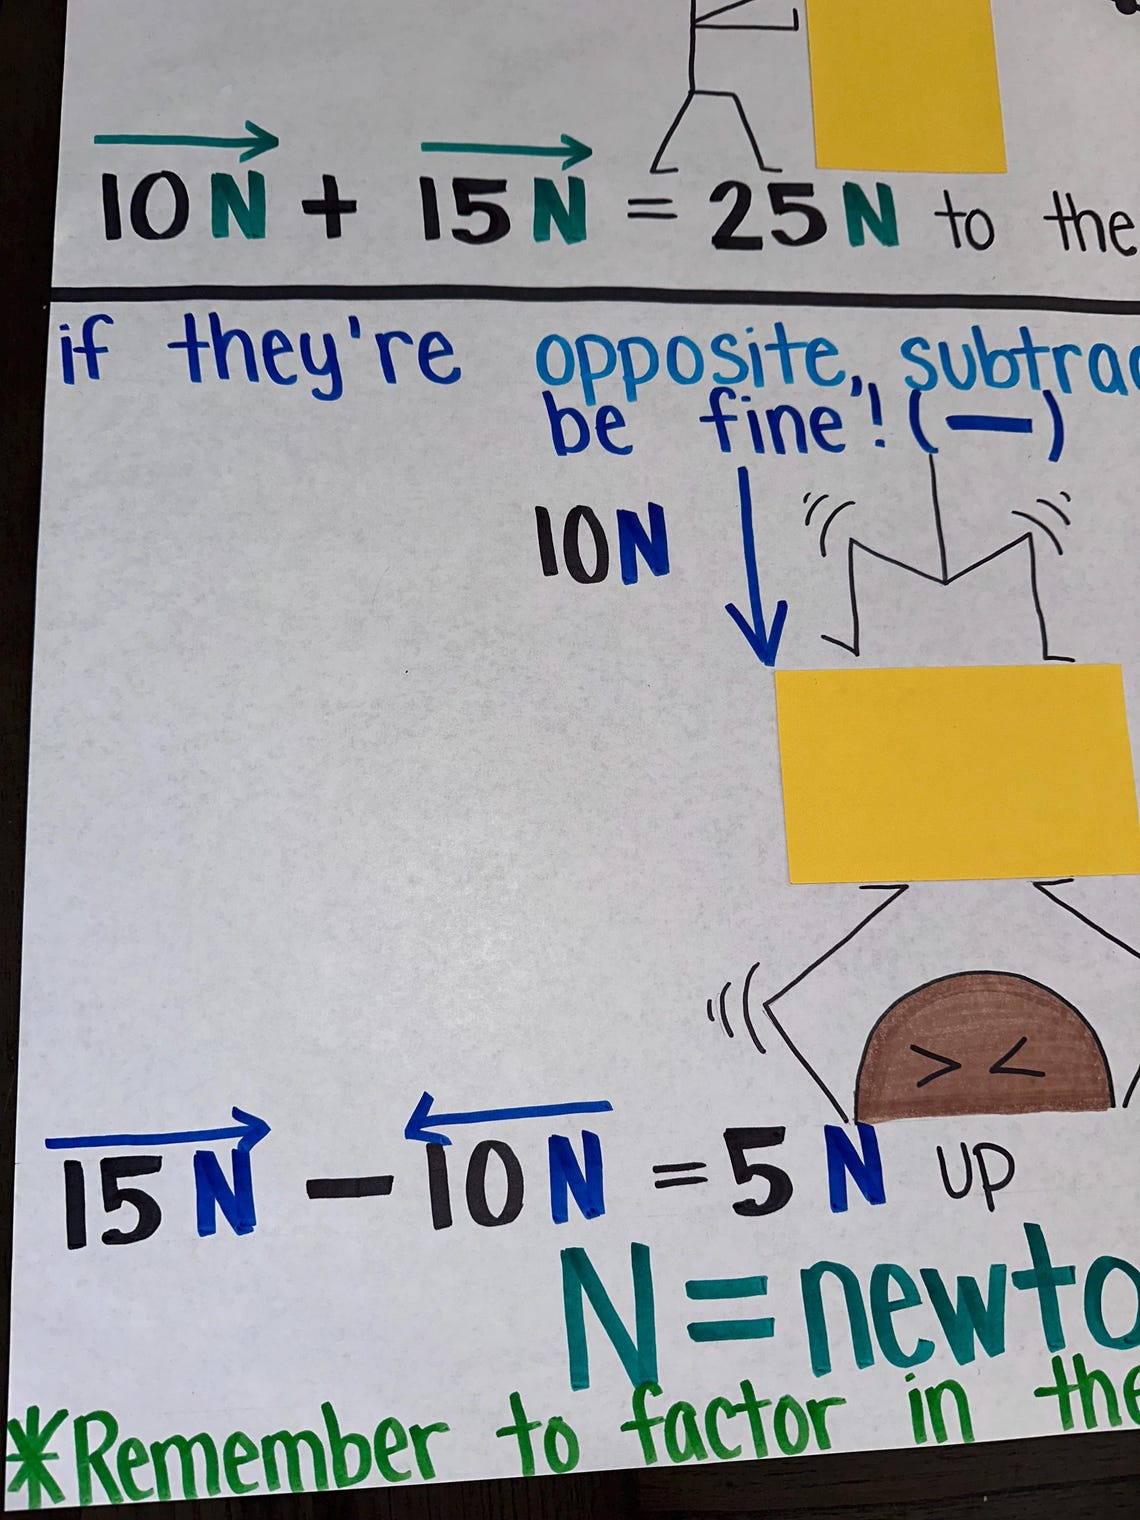 10N + 15N = 25N to the
if they're opposite, subtrac
be fine"! (—)
10N
> <
15N — 10N = 5N UP
N = newto
*Remember to factor in the